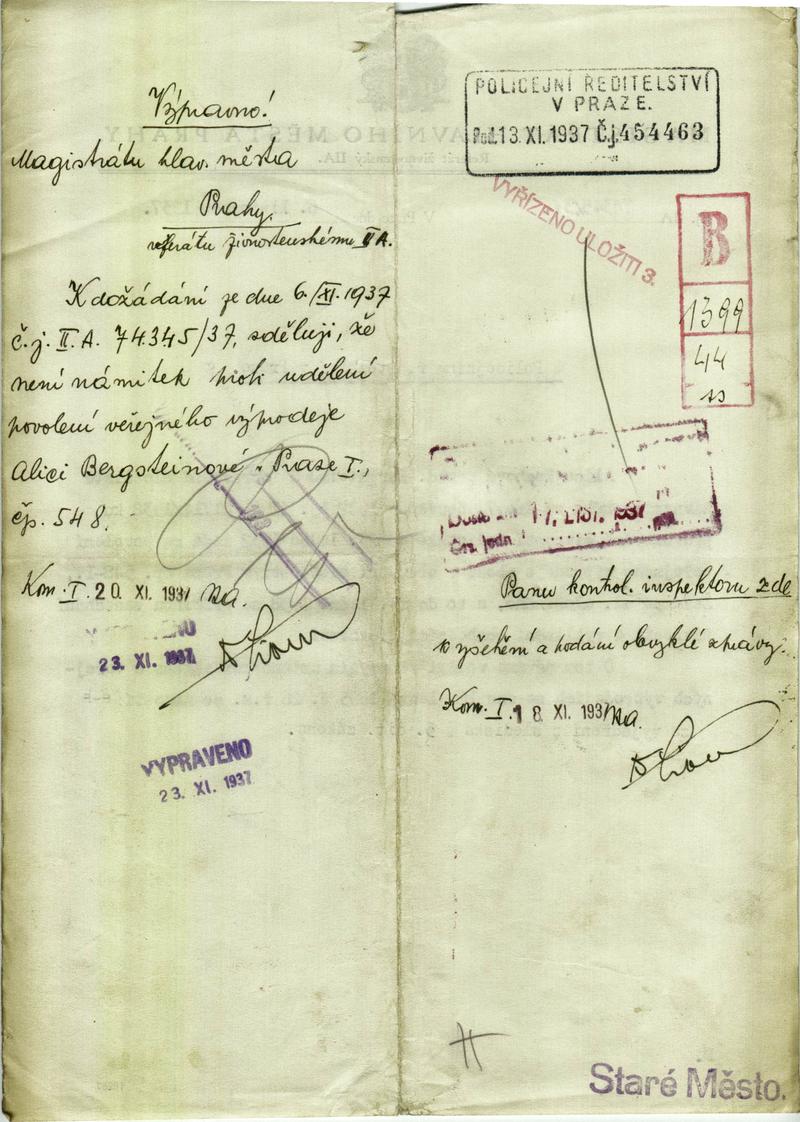 Výpravno!
Magistrátu hlav. města
Prahy.
referátu živnostenskému II A.
K dožádání ze dne 6./XI. 1937
č.j. II. A. 74.345/37, sděluji, že
není námitek proti udělení
povolení veřejného výprodeje
Alici Bergsteinové v Praze I.,
čp. 548.
Kom. I. 20. XI. 1937
23. XI. 1937
VYPRAVENO
23. XI. 1937
POLICEJNÍ ŘEDITELSTVÍ
V PRAZE.
Pod. 13. XI. 1937 Č.j. 454463
VYŘÍZENO ULOŽITI 3.
B
1399
44
Došlo dne 17. LIST. 1937
Čís. jedn.
Panu kontrol. inspektoru zde
k vyšetření a podání obvyklé zprávy.
Kom. I. 18. XI. 1937
Staré Město.